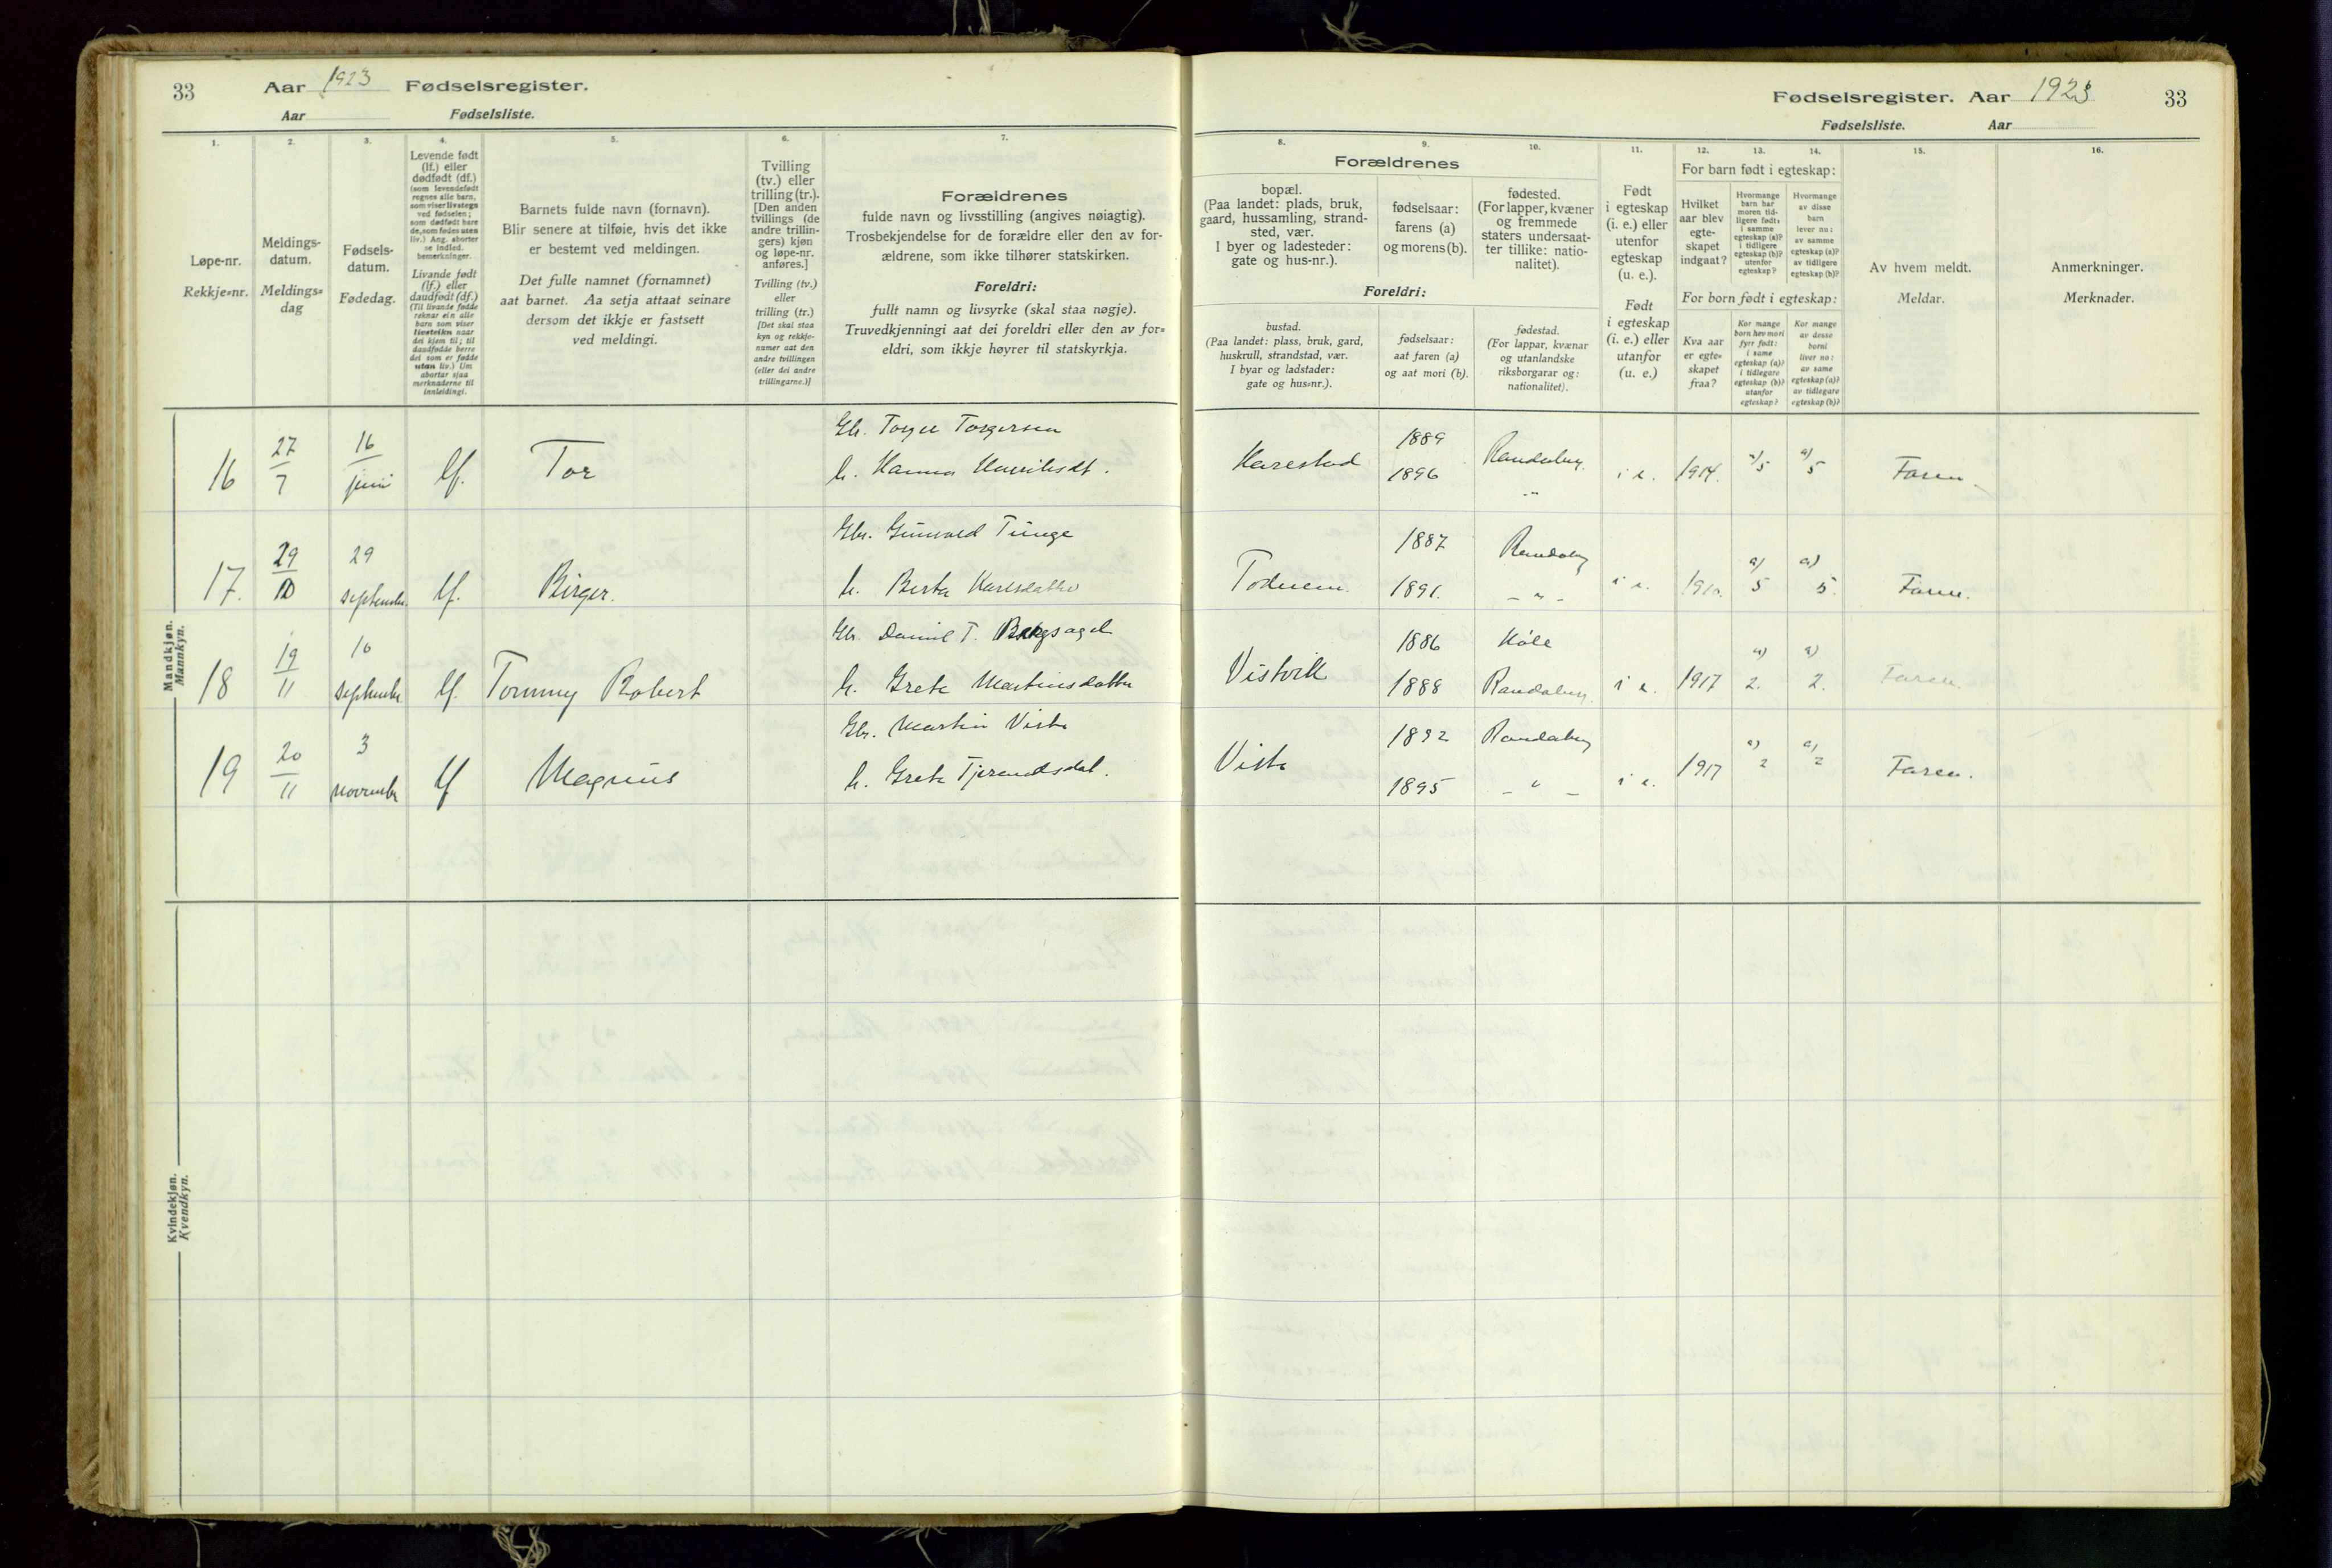 33 Aar 1923 Fødselsregister.
Aar Fødselsliste.
1.
2.
3.
4.
5.
6.
7.
Løpe-nr.
Rekkje=nr.
Meldings-
datum.
Meldings=
dag
Fødsels-
datum.
Fødedag.
Levende født
(lf.) eller
dødfødt (df.)
(som levendefødt
regnes alle barn,
som viser livstegn
ved fødselen;
som dødfødt bare
de, som fødes uten
liv.) Ang. aborter
se indled.
bemerkninger.
Livande født
(lf.) eller
daudfødt (df.)
(Til livande fødde
reknar ein alle
barn som viser
livsteikn naar
dei kjem til; til
daudfødde berre
dei som er fødde
utan liv.) Um
abortar sjaa
merknaderne til
innleidingi.
Barnets fulde navn (fornavn).
Blir senere at tilføie, hvis det ikke
er bestemt ved meldingen.
Det fulle namnet (fornamnet)
aat barnet. Aa setja attaat seinare
dersom det ikkje er fastsett
ved meldingi.
Tvilling
(tv.) eller
trilling (tr.).
[Den anden
tvillings (de
andre trillin-
gers) kjøn
og løpe-nr.
anføres.]
Tvilling (tv.)
eller
trilling (tr.)
[Det skal staa
kyn og rekkje-
numer aat den
andre tvillingen
(eller dei andre
trillingarne.)]
Forældrenes
fulde navn og livsstilling (angives nøiagtig).
Trosbekjendelse for de forældre eller den av for-
ældrene, som ikke tilhører statskirken.
Foreldri:
fullt namn og livsyrke (skal staa nøgje).
Truvedkjenningi aat dei foreldri eller den av for=
eldri, som ikkje høyrer til statskyrkja.
Mandkjøn.
Mannkyn.
16 27/7 16 juni lf. Tor
Gbr. Torger Torgersen
h. Hanna Henriksdt.
17. 29/10 29 september lf. Birger.
Gbr. Gunvald Tunge
h. Berta Karlsdatter
18 19/11 10 september lf. Tommy Robert
Gbr. Daniel T. Bergsagel
h. Grete Martinsdatter
19 20/11 3 november lf Magnus
Gbr. Martin Viste
h. Grete Tjerandsdat.
Kvindekjøn.
Kvendkyn.
Fødselsregister. Aar 1923 33
Fødselsliste. Aar
8.
9.
10.
11.
12.
13.
14.
15.
16.
Forældrenes
bopæl.
(Paa landet: plads, bruk,
gaard, hussamling, strand-
sted, vær.
I byer og ladesteder:
gate og hus-nr.).
fødselsaar:
farens (a)
og morens (b).
fødested.
(For lapper, kvæner
og fremmede
staters undersaat-
ter tillike: natio-
nalitet).
Foreldri:
bustad.
(Paa landet: plass, bruk, gard,
huskrull, strandstad, vær.
I byar og ladstader:
gate og hus=nr.).
fødselsaar:
aat faren (a)
og aat mori (b).
fødestad.
(For lappar, kvænar
og utanlandske
riksborgarar og:
nationalitet).
Født
i egteskap
(i. e.) eller
utenfor
egteskap
(u. e.).
Født
i egteskap
(i. e.) eller
utanfor
(u. e.)
For barn født i egteskap:
Hvilket
aar blev
egte-
skapet
indgaat?
Hvormange
barn har
moren tid-
ligere født:
i samme
egteskap (a)?
i tidligere
egteskap (b)?
utenfor
egteskap?
Hvormange
av disse
barn
lever nu:
av samme
egteskap (a)?
av tidligere
egteskap (b)?
For born født i egteskap:
Kva aar
er egte=
skapet
fraa?
Kor mange
born hev mori
fyrr født:
i same
egteskap (a)?
i tidlegare
egteskap (b)?
utanfor
egteskap?
Kor mange
av desse
borni
liver no:
av same
egteskap (a)?
av tidlegare
egteskap (b)?
Av hvem meldt.
Meldar.
Anmerkninger.
Merknader.
Harestad 1889 Randaberg.
1896 -"- i e. 1914. a) 5 a) 5 Faren.
1887 Randaberg
Todnem. 1891. - " - i e. 1910. a) 5 a) 5. Faren.
1886 Høle
Vistvik 1888 Randaberg. i e. 1917 a) 2. a) 2. Faren.
1892 Randaberg
Viste 1895 - " - i e. 1917 a) 2 a) 2 Faren.